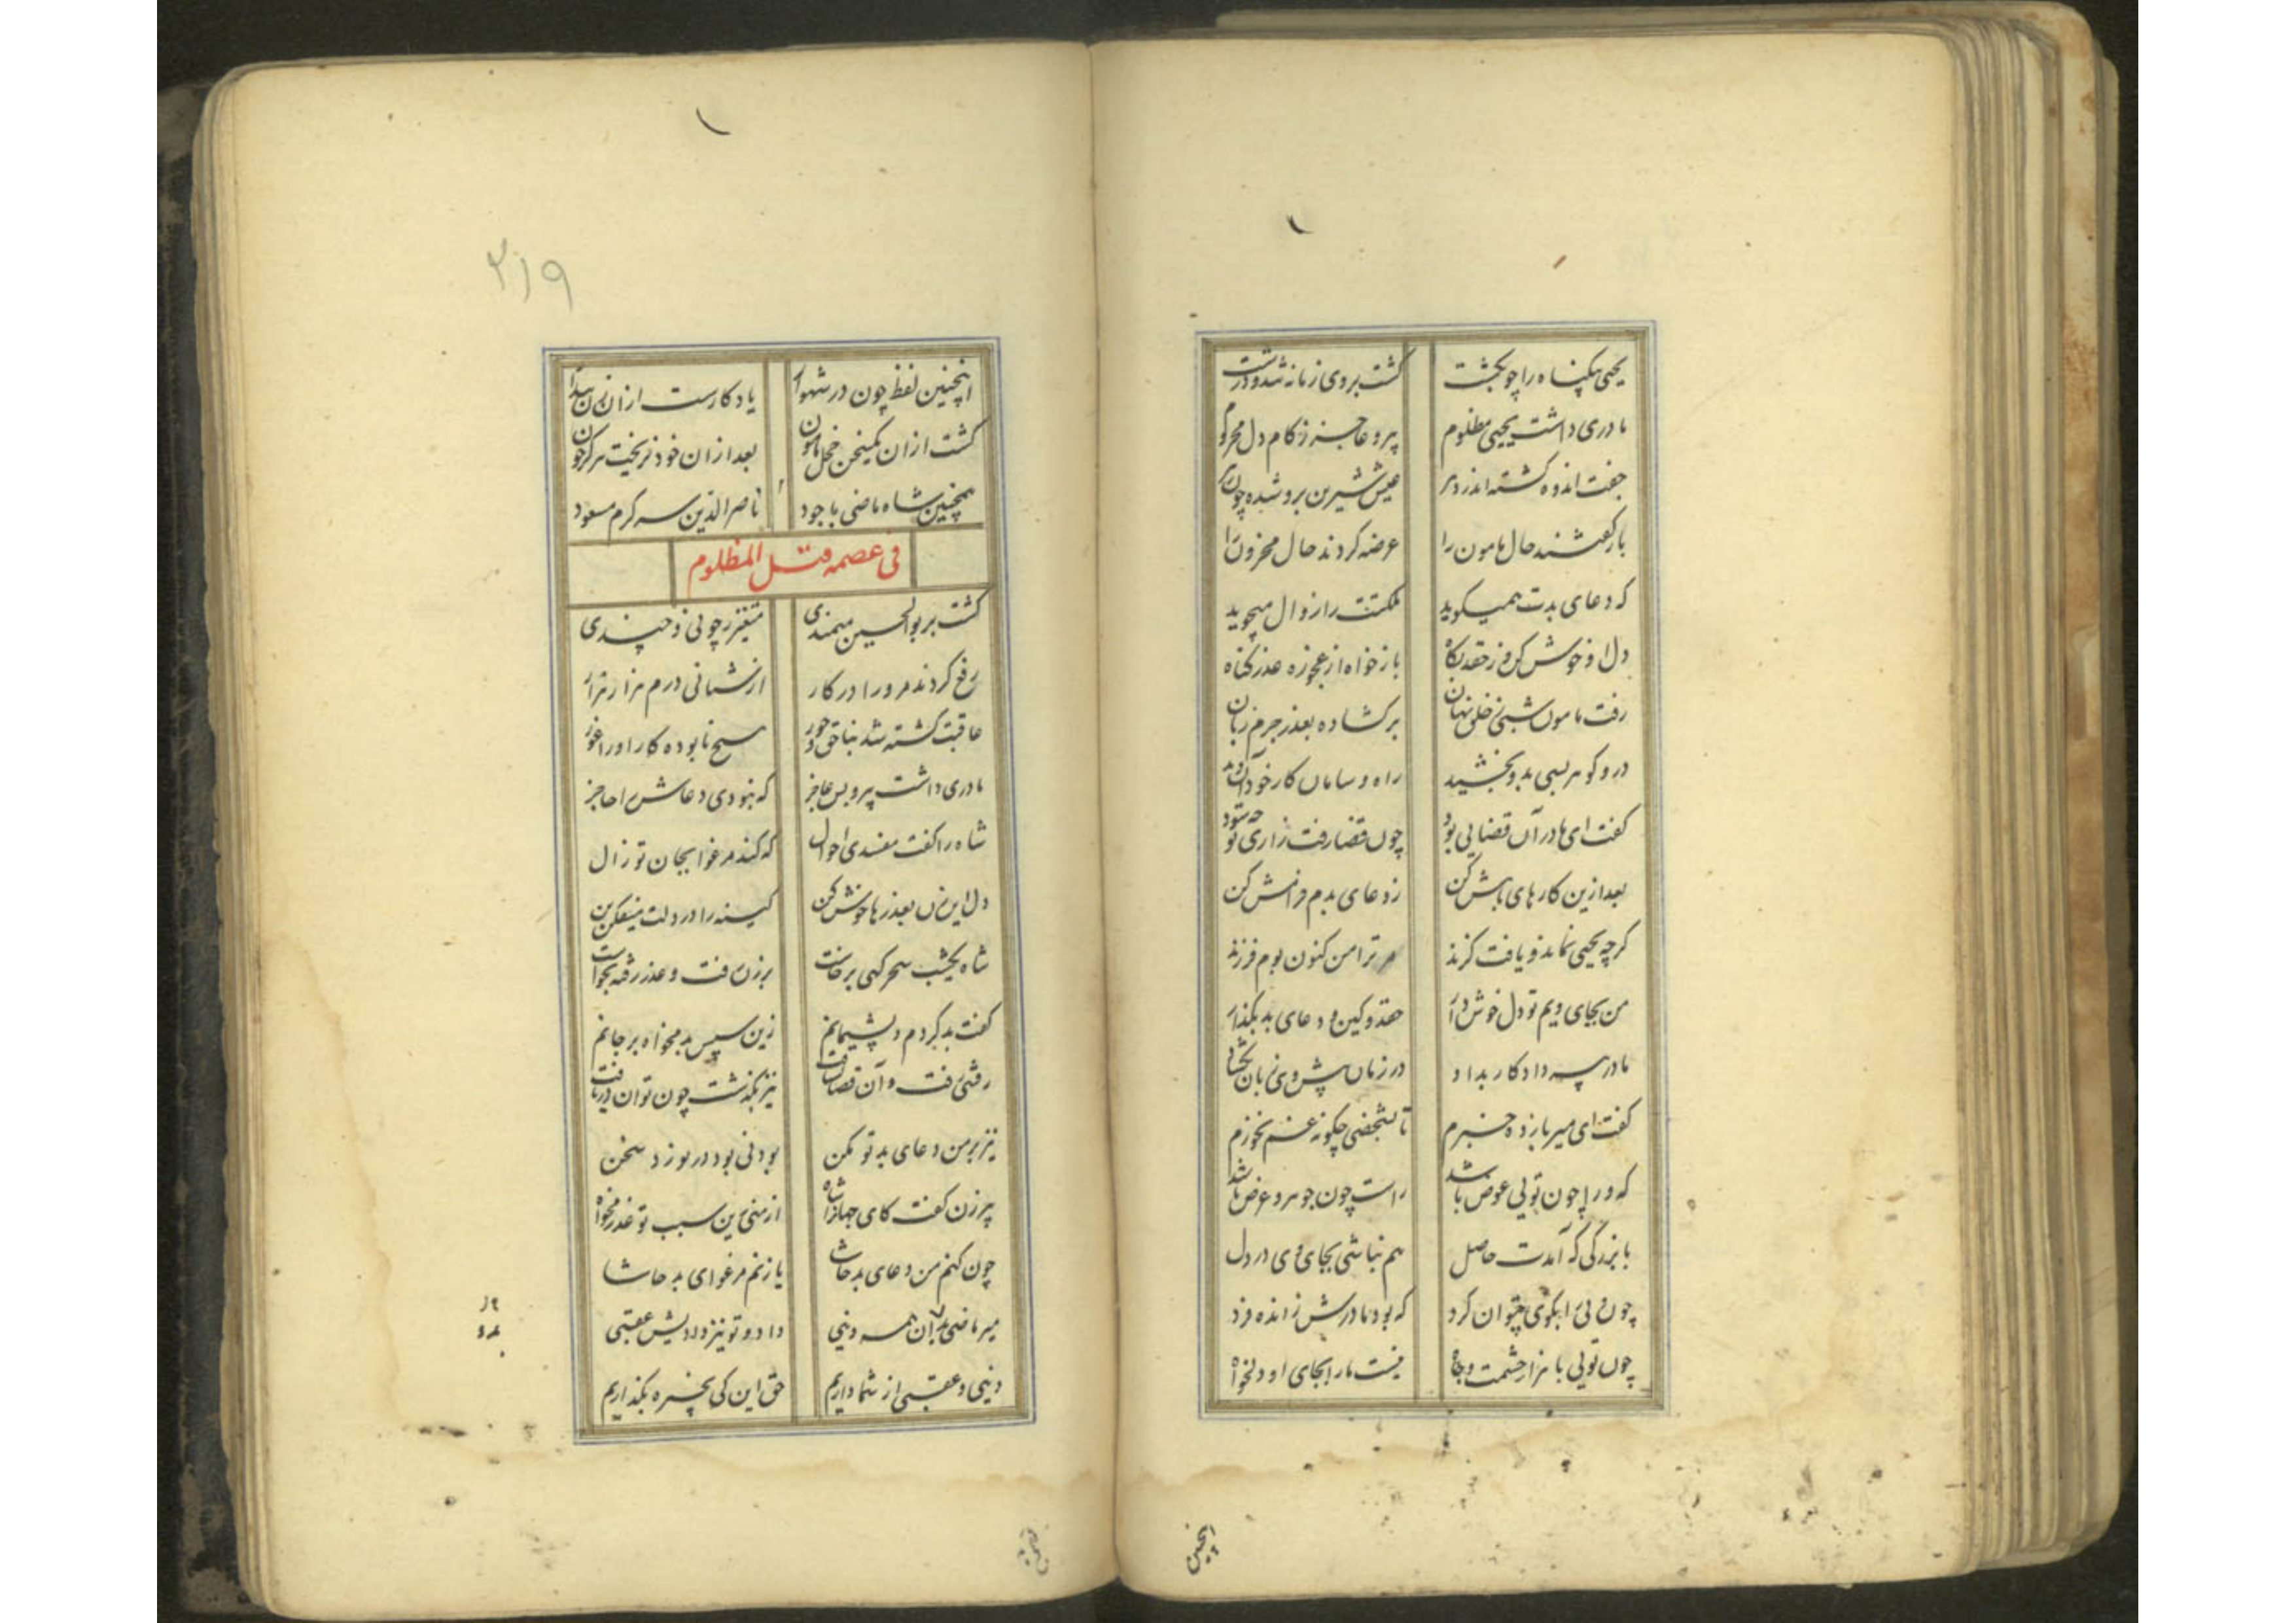 یحیی بیکناه را چو بکشت کشت بروی زمانه تند و درشت
مادری داشت یحیی مظلوم پیر و عاجز ز کام دل محروم
جفت اندوه کشته اندر دهر عیش شیرین برو شده چون زهر
باز کفتند حال مامون را عرضه کردند حال محزون را
که دعای بدت همیکوید ملکتت را زوال میجوید
دل او خوش کن و ز حقد بکاه باز خواه از عجوزه عذر کناه
رفت مامون شبی ز خلق نهان برکشاده بعذر جرم زبان
در و کوهر بسی بدو بخشید راه و سامان کار خود آن دید
کفت ای مادر آن قضایی بود چون قضا رفت زاری تو چه سود
بعد ازین کارهای باهش کن ز دعای بدم فرامش کن
کرچه یحیی نماند و یافت کزند مر ترا من کنون بوم فرزند
من بجای ویم تو دل خوش دار حقد و کین و دعای بد بکذار
مادر پسر داد کار بداد در زمان پیش وی زبان بکشاد
کفت ای میر باز ده خبرم تا بشخصی چکونه غم نخورم
که ورا چون تویی عوض باشد راست چون جوهر و عرض باشد
با بزرکی که آمدت حاصل هم نباشی بجای وی در دل
چون تویی با هزار حشمت و جاه نیست مارا بجای او دلخواه
اینچنین
۲۱۹
اینچنین لفظ چون در شهوار یادکارست از ان زن بیدار
کشت از ان یک سخن خجل مامون بعد از ان خود نریخت هرکز خون
همچنین شاه ماضی با جود ناصر الدین سر کرم مسعود
فی عصمه قتل المظلوم
کشت بر بوالحسین میمندی متغیر ز چونی و چندی
رفع کردند مرورا در کار ارتشانی درم هزار هزار
عاقبت کشته شد بناحق و جور هیچ نابوده کار اورا غور
مادری داشت پیر و بس عاجز که نبودی دعاش را حاجز
شاه را کفت مفسدی احوال که کند مرغوا بجان تو زال
دل این زن بعذرها خوش کن کینه را در دلت
شاه یکشب سحرکهی برخاست بر زن رفت و عذر رفته بخواست
کفت بد کردم و پشیمانم زین سپس بد مخواه بر جانم
رفتنی رفت و آن قصاص نیز بکذشت چون توان دریافت
نیز بر من دعای بد تو مکن بودنی بود در نورد سخن
پیرزن کفت کای جهانرا شاه از منی زین سبب تو عذر مخواه
چون کنم من دعای بد حاشا یا زنم مرغوای بد حاشا
میر ماضی بدان همه دینی داد و تو نیز دادیش عقبی
دینی و عقبی از شما داریم حق این کی بخیره بکذاریم